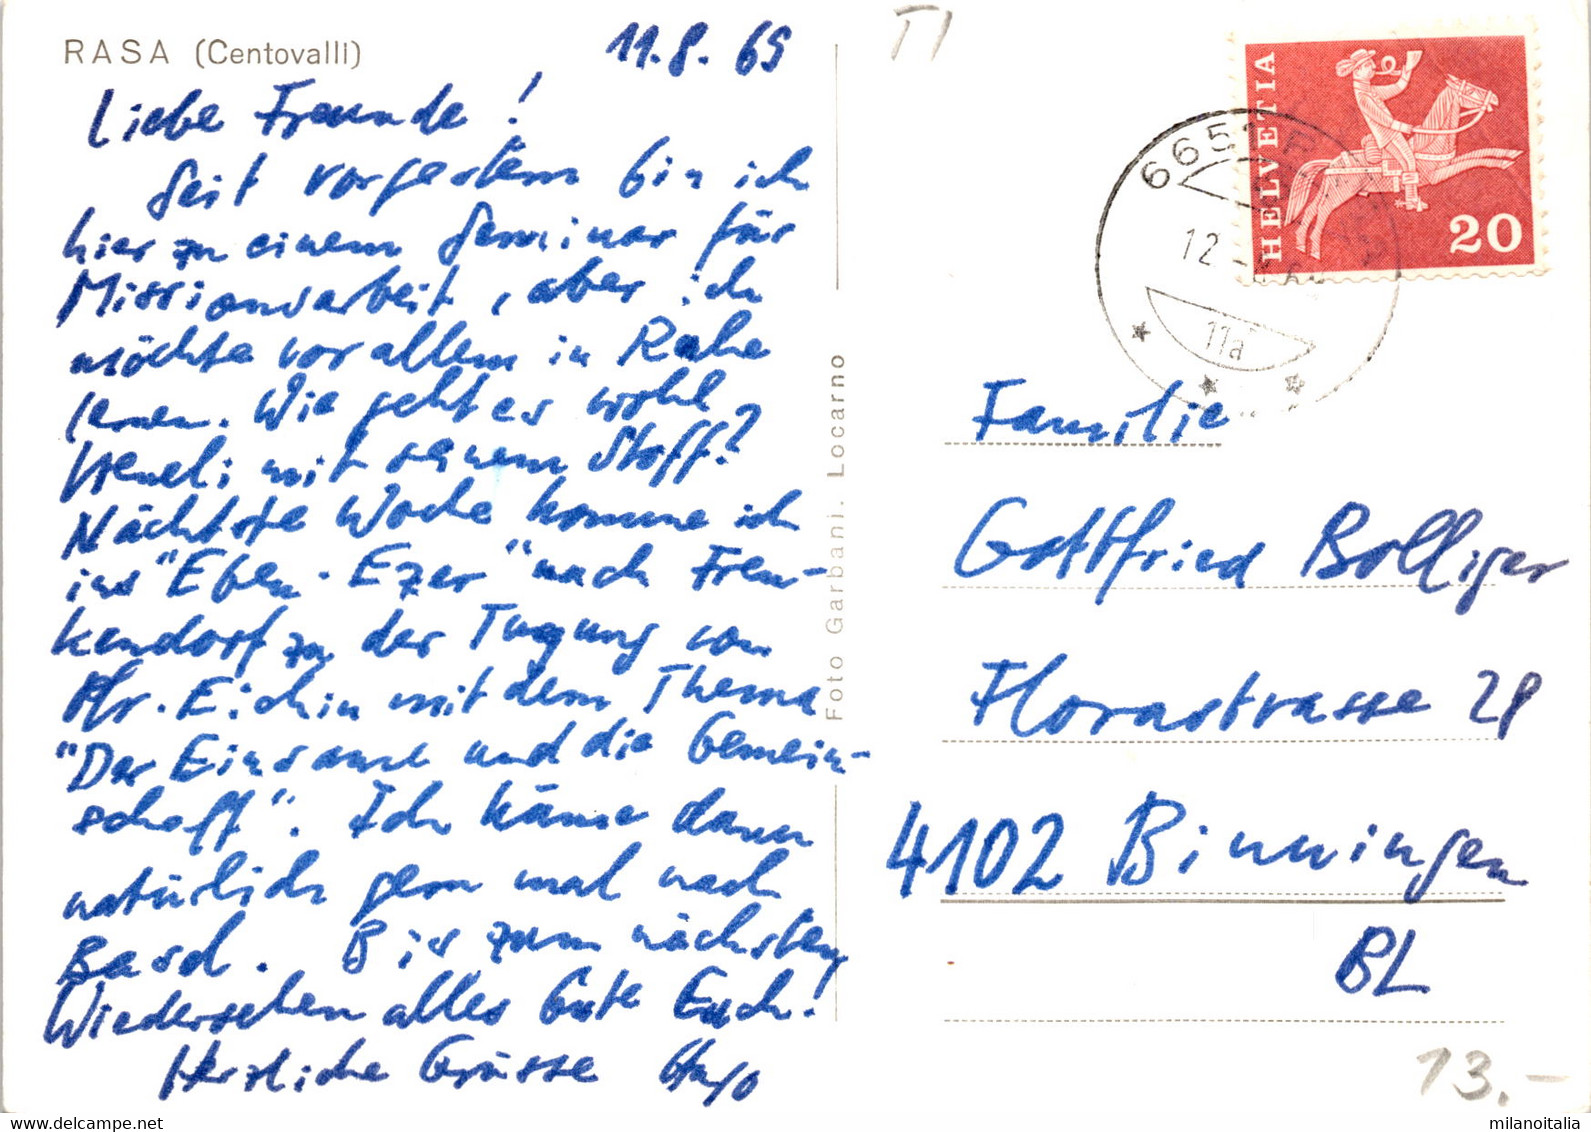 RASA (Centovalli)
11.8.69
Liebe Freunde!
Seit vorgestern bin ich
hier zu einem Seminar für
Missionsarbeit, aber ich
möchte vor allem in Ruhe
lernen. Wie geht es wohl
Vreneli mit seinem Stoff?
Nächtste Woche komme ich
ins "Eben-Ezer" nach Fren-
kendorf zu der Tagung von
Pfr. Eichin mit dem Thema
"Der Einsame und die Gemein-
schaft". Ich käme dann
natürlich gern mal nach
Basel. Bis zum nächsten
Wiedersehen alles Gute Euch!
Herzliche Grüsse Hugo
Foto Garbani. Locarno
TI
HELVETIA
20
6651
12
11a
Familie
Gottfried Bolliger
Florastrasse 28
4102 Binningen
BL
13.-
milanoitalia